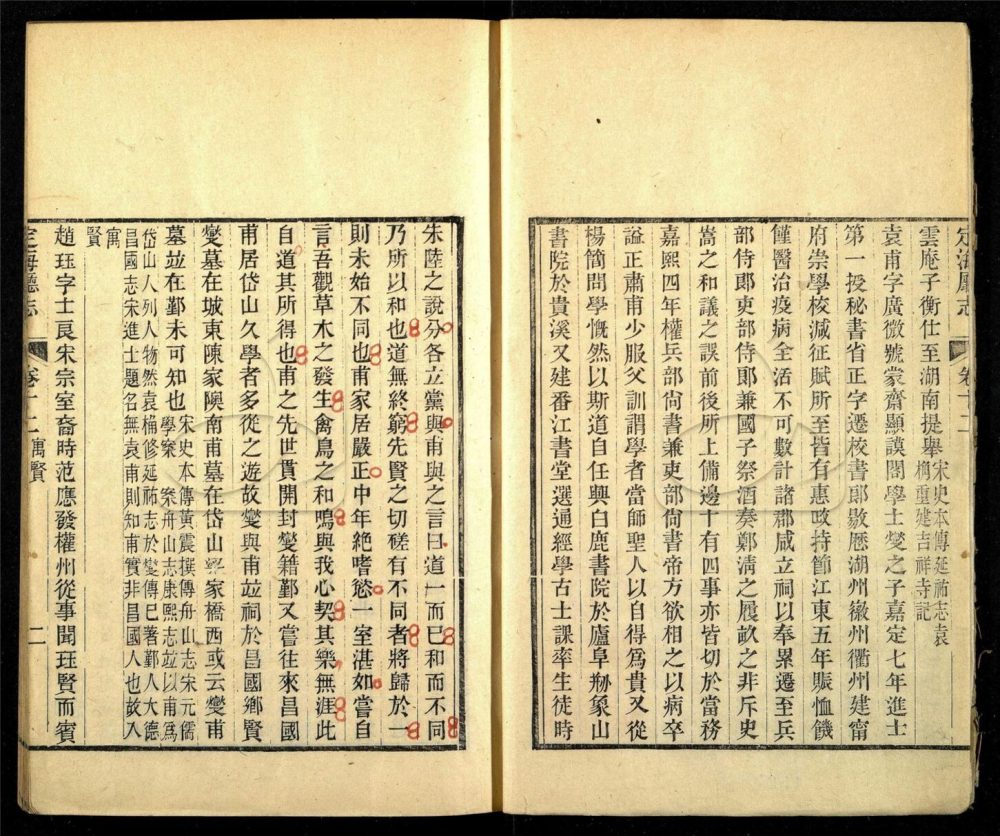 定海廳志 卷十二
雲庵子衡仕至湖南提舉宋史本傳延祐志袁
桷重建吉祥寺記
袁甫字廣微號蒙齋顯謨閣學士燮之子嘉定七年進士
第一授秘書省正字遷校書郞歇歴湖州徽州衢州建甯
府崇學校減征賦所至皆有惠政持節江東五年賑恤饑
饉醫治疫病全活不可數計諸郡咸立祠以奉累遷至兵
部侍郞吏部侍郞兼國子祭酒奏鄭淸之履畝之非斥史
嵩之和議之誤前後所上備邊十有四事亦皆切於當務
嘉熙四年權兵部尙書兼吏部尙書帝方欲相之以病卒
謚正肅甫少服父訓謂學者當師聖人以自得爲貴又從
楊簡問學慨然以斯道自任興白鹿書院於廬阜剏象山
書院於貴溪又建番江書堂選通經學古士課率生徒時
朱陸之說分各立黨與甫與之言曰道一而已和而不同
乃所以和也道無終窮先賢之切磋有不同者將歸於一
則未始不同也甫家居嚴正中年絶嗜慾一室湛如嘗自
言吾觀草木之發生禽鳥之和鳴與我心契其樂無涯此
自道其所得也甫之先世貫開封燮籍鄞又嘗往來昌國
甫居岱山久學者多從之遊故燮與甫竝祠於昌國鄕賢
燮墓在城東陳家隩南甫墓在岱山 家橋西或云燮甫
墓竝在鄞未可知也宋史本傳黃震撰傳舟山志宋元儒
學案 案舟山志康熙志竝以甫爲
岱山人列人物然袁桷修延祐志於燮傳已著鄞人大德
昌國志宋進士題名無袁甫則知甫實非昌國人也故入
寓
賢
趙珏字士良宋宗室裔時范應發權州從事聞珏賢而賓
定海廳志 卷十二 寓賢 二